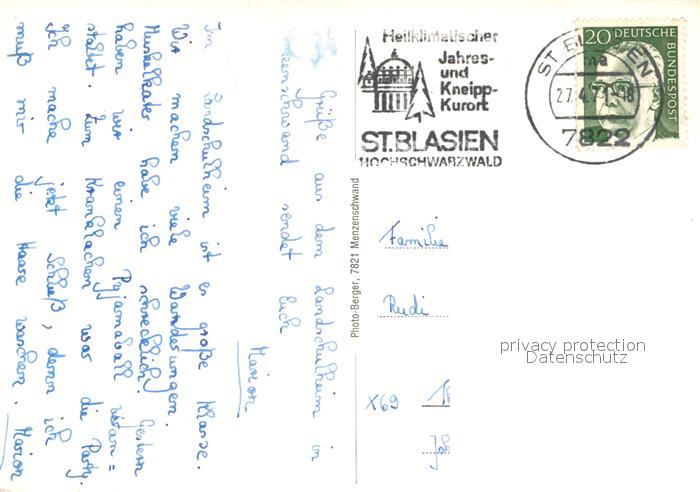 Grüße aus dem Landschulheim in
Menzenschwand sendet Euch
Marion
Im Landschulheim ist es große Klasse.
Wir machen viele Wanderungen.
Muskelkater habe ich schrecklich! Gestern
haben wir einen Pyjamaball veran=
staltet. Zum Kranklachen war die Party.
Ich mache jetzt Schluß, denn ich
muß mir die Haare waschen. Marion
Photo-Berger, 7821 Menzenschwand
Heilklimatischer
Jahres-
und
Kneipp-
Kurort
ST.BLASIEN
HOCHSCHWARZWALD
27.4.7
7822
20 DEUTSCHE
BUNDESPOST
Familie
Rudi
X69
privacy protection
Datenschutz